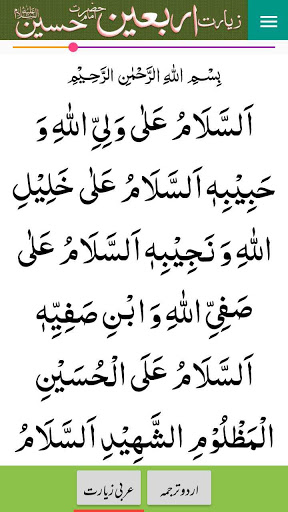 زیارت اربعین حضرت امام حسین
بِسْمِ اللهِ الرَّحْمٰنِ الرَّحِيْمِ
اَلسَّلَامُ عَلٰى وَلِيِّ اللهِ وَ
حَبِيْبِهٖ اَلسَّلَامُ عَلٰى خَلِيْلِ
اللهِ وَ نَجِيْبِهٖ اَلسَّلَامُ عَلٰى
صَفِيِّ اللهِ وَ ابْنِ صَفِيِّهٖ
اَلسَّلَامُ عَلَى الْحُسَيْنِ
الْمَظْلُوْمِ الشَّهِيْدِ اَلسَّلَامُ
عربی زیارت
اردو ترجمہ